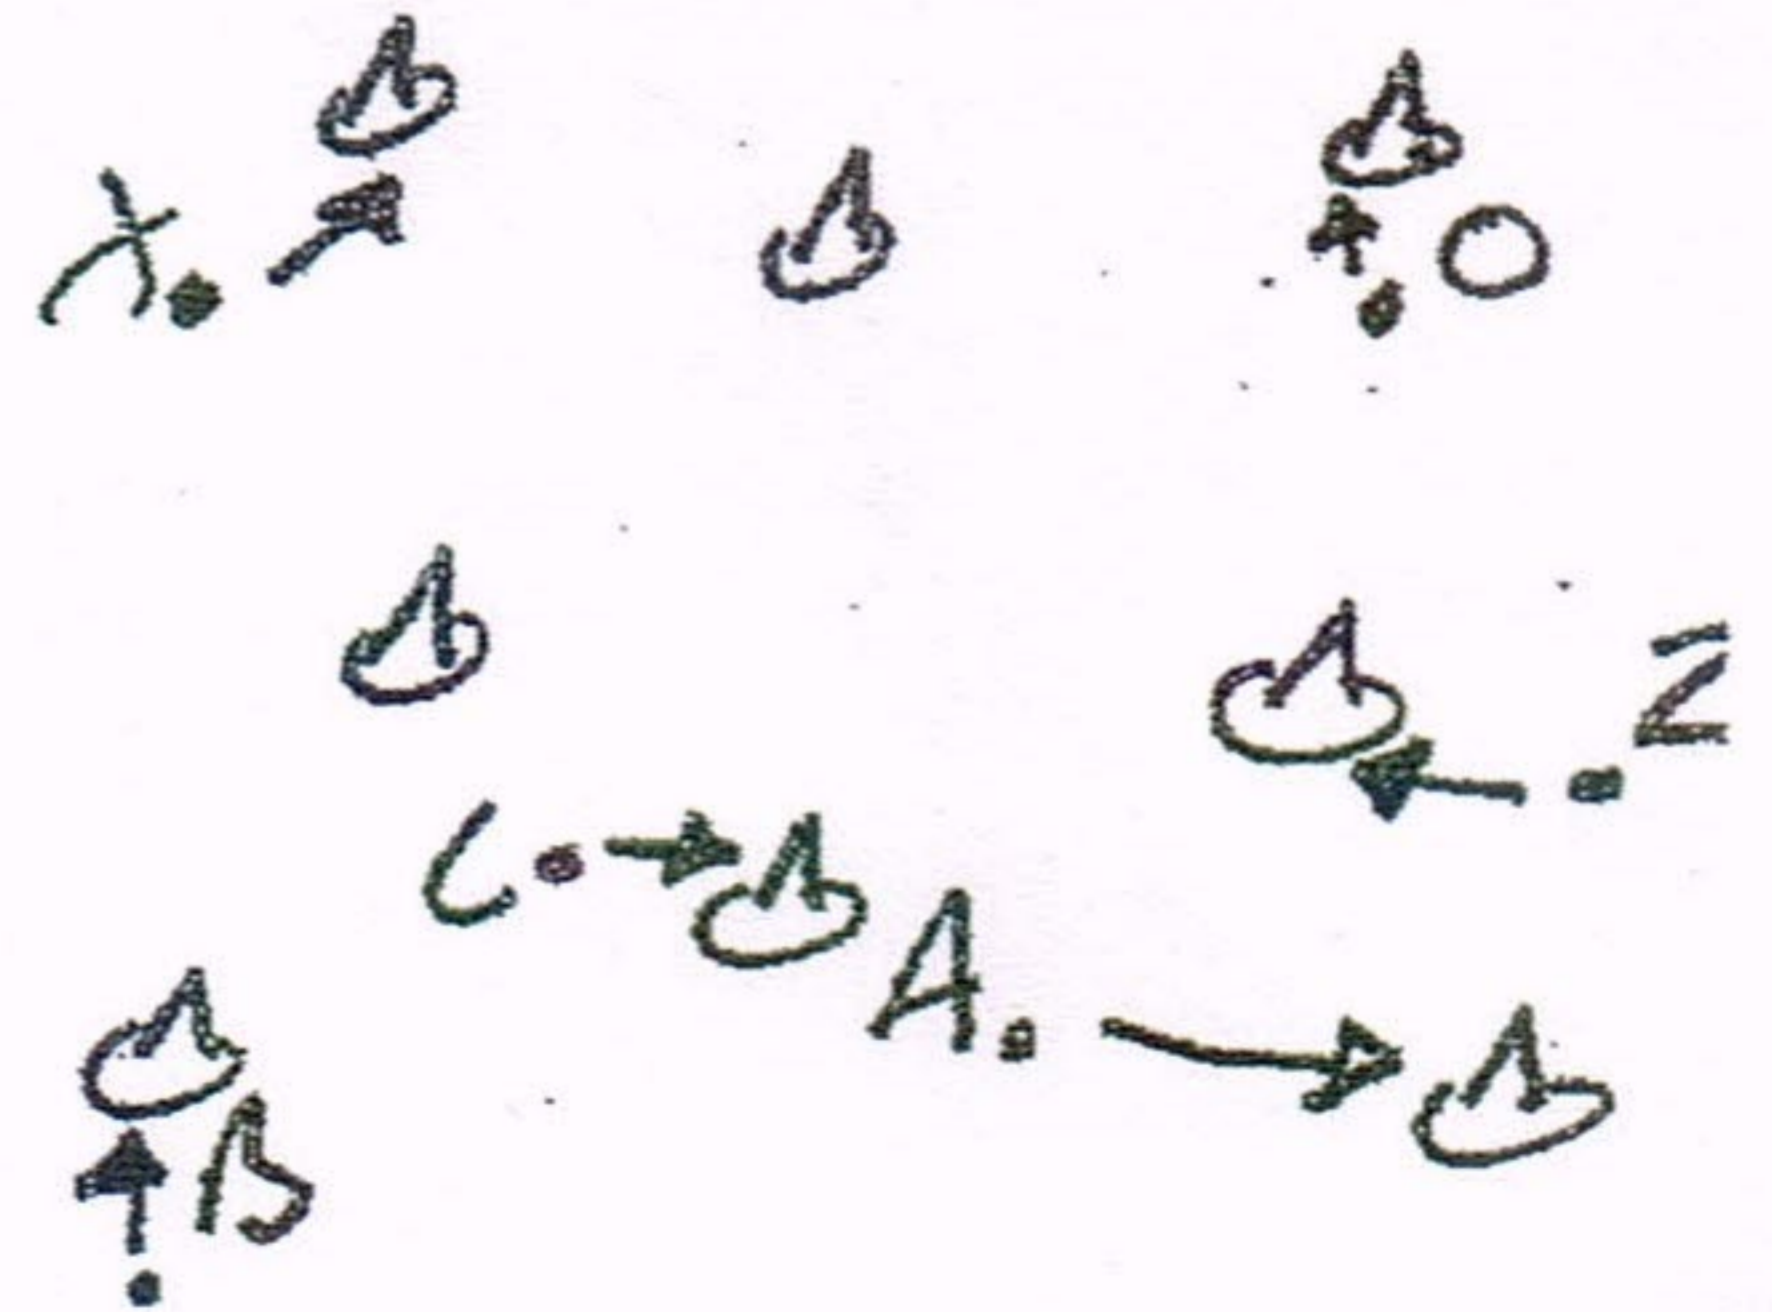 X
O
Z
C
A
B